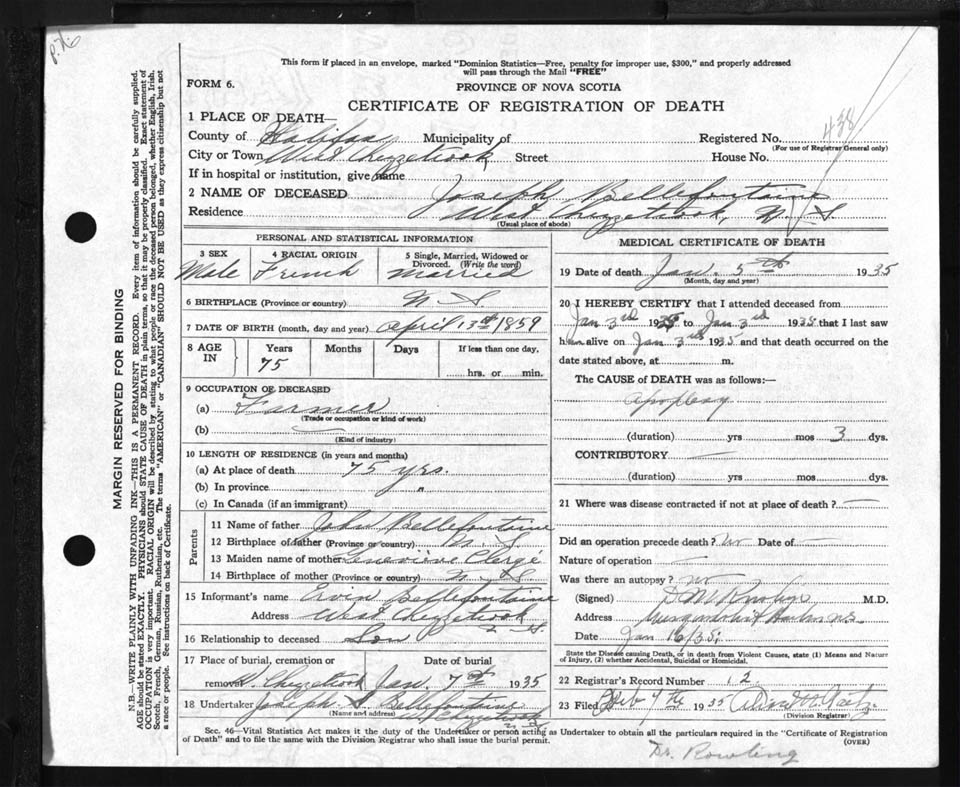 P.76
This form if placed in an envelope, marked "Dominion Statistics—Free, penalty for improper use, $300," and properly addressed
will pass through the Mail "FREE"
FORM 6.
PROVINCE OF NOVA SCOTIA
CERTIFICATE OF REGISTRATION OF DEATH
438
1 PLACE OF DEATH—
County of Halifax Municipality of Registered No.
(For use of Registrar General only)
City or Town West Chezzetcook Street House No.
If in hospital or institution, give name
2 NAME OF DECEASED Joseph Bellefontaine
Residence West Chezzetcook, N. S.
(Usual place of abode)
PERSONAL AND STATISTICAL INFORMATION
3 SEX Male
4 RACIAL ORIGIN French
5 Single, Married, Widowed or Divorced. (Write the word) Married
6 BIRTHPLACE (Province or country) N. S.
7 DATE OF BIRTH (month, day and year) April 13th 1859
8 AGE IN Years Months Days If less than one day,
75 hrs. or min.
9 OCCUPATION OF DECEASED
(a) Farmer
(Trade or occupation or kind of work)
(b) —
(Kind of industry)
10 LENGTH OF RESIDENCE (in years and months)
(a) At place of death 75 yrs.
(b) In province "
(c) In Canada (if an immigrant)
Parents
11 Name of father John Bellefontaine
12 Birthplace of father (Province or country) N. S.
13 Maiden name of mother Genevieve Clergé
14 Birthplace of mother (Province or country) N. S.
15 Informant's name Ervin Bellefontaine
Address West Chezzetcook N. S.
16 Relationship to deceased Son
17 Place of burial, cremation or removal W. Chezzetcook
Date of burial Jan. 7th 1935
18 Undertaker Joseph S. Bellefontaine
(Name and address) W. Chezzetcook N. S.
MEDICAL CERTIFICATE OF DEATH
19 Date of death Jan. 5th 1935
(Month, day and year)
20 I HEREBY CERTIFY that I attended deceased from
Jan 3rd 1935 to Jan 3rd 1935 that I last saw
him alive on Jan 3rd 1935 and that death occurred on the
date stated above, at m.
The CAUSE of DEATH was as follows:—
apoplexy
(duration) yrs mos 3 dys.
CONTRIBUTORY —
(duration) yrs mos dys.
21 Where was disease contracted if not at place of death? —
Did an operation precede death? no Date of —
Nature of operation —
Was there an autopsy? no
(Signed) M.D.
Address Musquodoboit Harbour N.S.
Date Jan 16/35
State the Disease causing Death, or in death from Violent Causes, state (1) Means and Nature
of Injury, (2) whether Accidental, Suicidal or Homicidal.
22 Registrar's Record Number 12
23 Filed Feb 7th 1935
(Division Registrar)
Sec. 46—Vital Statistics Act makes it the duty of the Undertaker or person acting as Undertaker to obtain all the particulars required in the "Certificate of Registration
of Death" and to file the same with the Division Registrar who shall issue the burial permit.
(OVER)
Dr. Rowling
MARGIN RESERVED FOR BINDING
N.B.—WRITE PLAINLY WITH UNFADING INK—THIS IS A PERMANENT RECORD. Every item of information should be carefully supplied.
AGE should be stated EXACTLY. PHYSICIANS should STATE CAUSE OF DEATH in plain terms, so that it may be properly classified. Exact statement of
OCCUPATION is very important. RACIAL ORIGIN will be described by stating to what people or race the deceased person belonged, whether English, Irish,
Scotch, French, German, Russian, Ruthenian, etc. The terms "AMERICAN" or "CANADIAN" SHOULD NOT BE USED as they express citizenship but not
a race or people. See instructions on back of Certificate.